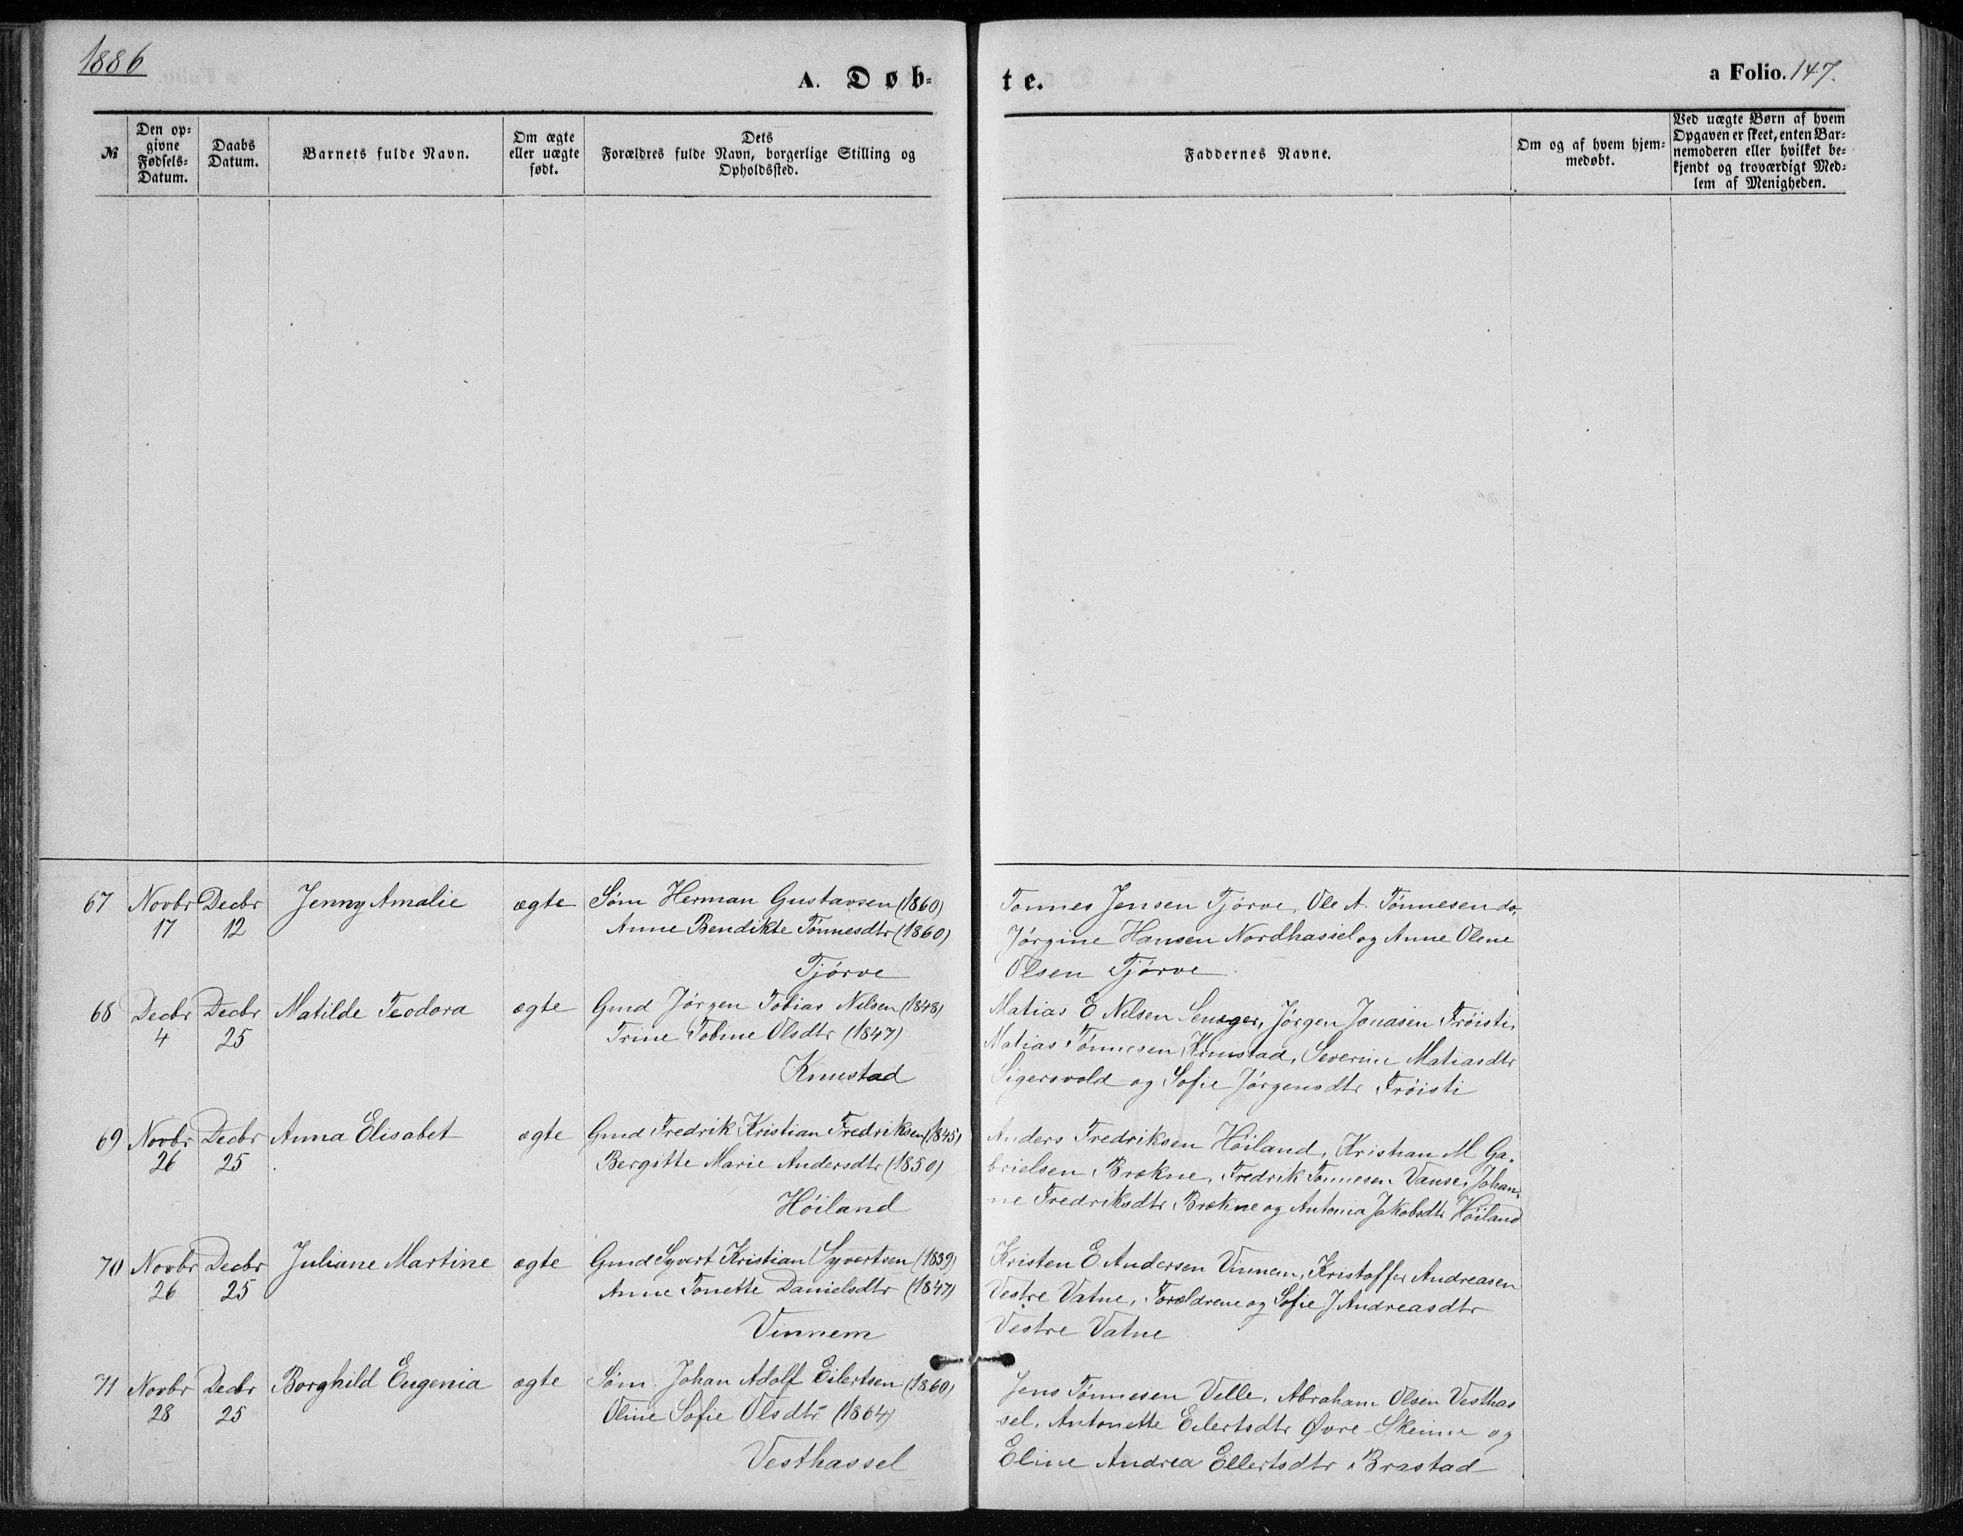 1886
A. Døb-
te.
a Folio. 147.
№
Den op-
givne
Fødsels-
Datum.
Daabs
Datum.
Barnets fulde Navn.
Om ægte
eller uægte
født.
Dets
Forældres fulde Navn, borgerlige Stilling og
Opholdssted.
Faddernes Navne.
Om og af hvem hjem-
medøbt.
Ved uægte Børn af hvem
Opgaven er skeet, enten Bar-
nemoderen eller hvilket be-
kjendt og troværdigt Med-
lem af Menigheden.
67 Novbr 17 Decbr 12 Jenny Amalie ægte
Søm Herman Gustavsen (1860)
Anne Bendikte Tønnesdtr (1860)
Tjørve
Tønnes Jensen Tjørve, Ole A. Tønnesen do,
Jørgine Hansen Nordhassel og Anne Olene
Olsen Tjørve
68 Decbr 4 Decbr 25 Matilde Teodora ægte
Gmd Jørgen Tobias Nilsen (1848)
Trine Tobine Olsdtr (1847)
Knustad
Matias E Nilsen Jørgen Jonasen Frøisti,
Matias Tønnesen, Knustad, Severine Matiasdtr
Sigersvold og Sofie Jørgensdtr Frøisti
69 Novbr 26 Decbr 25 Anna Elisabet ægte
Gmd Fredrik Kristian Fredriksen (1845)
Bergitte Marie Andersdtr (1850)
Høiland
Anders Fredriksen Høiland, Kristian M Ga-
brielsen, Brekne, Fredrik Tønnesen Vanse, Johan-
ne Fredriksdtr, Brekne og Antonia Jakobsdtr Høiland
70 Novbr 26 Decbr 25 Juliane Martine ægte
Gmd Syvert Kristian Syvertsen (1839)
Anne Tonette Danielsdtr (1847)
Vinnem
Kristen E. Andersen Vinnem, Kristoffer Andreasen
Vestre Vatne, Forældrene og Sofie J Andreasdtr
Vestre Vatne
71 Novbr 28 Decbr 25 Borghild Eugenia ægte
Søm. Johan Adolf Eilertsen (1860)
Oline Sofie Olsdtr (1864)
Vesthassel
Jens Tønnesen Velle, Abraham Olsen Vesthas
sel, Antonette Eilertsdtr Øvre Skeime og
Eline Andrea Ellertsdtr, Brastad